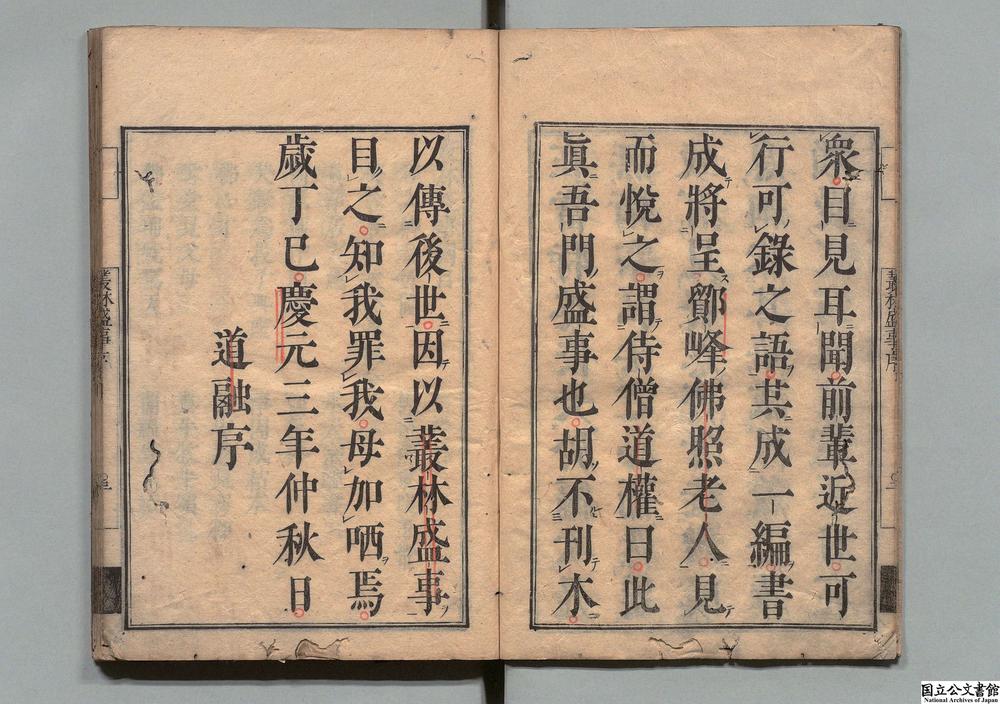 衆目見耳聞前輩近世可
行可錄之語其成一編書
成將呈鄮峰佛照老人見
而悅之謂侍僧道權曰此
眞吾門盛事也胡不刊木
以傳後世因以叢林盛事
目之知我罪我母加哂焉
歲丁巳慶元三年仲秋日
道融序
叢林盛事序
国立公文書館
National Archives of Japan